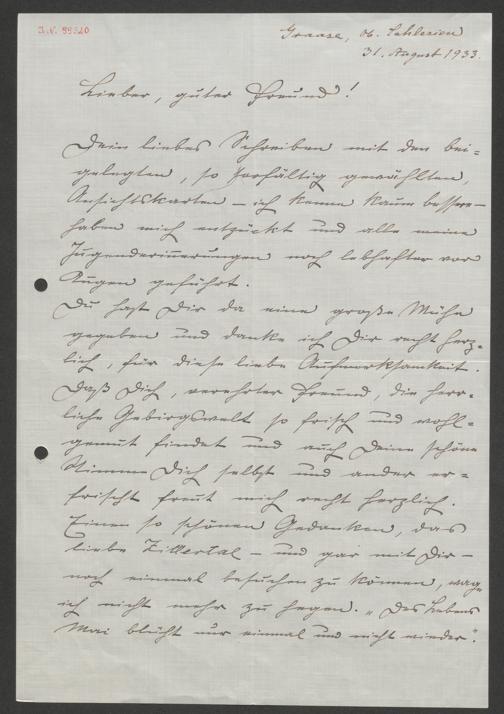 J.N. 99320
Graase, Ob. Schlesien
31. August 1933.
Lieber, guter Freund!
Dein liebes Schreiben mit den bei=
gelegten, so sorfältig gewählten,
Ansichtskarten – ich kenne kaum bessere –
haben mich entzückt und alle meine
Jugenderinnerungen noch lebhafter vor
Augen geführt.
Du hast Dir da eine große Mühe
gegeben und danke ich Dir recht herz=
lich, für diese liebe Aufmerksamkeit.
Daß Dich, verehrter Freund, die herr=
liche Gebirgswelt so frisch und wohl=
gemut findet und auch Deine schöne
Stimme Dich selbst und ander er=
frischt freut mich recht herzlich.
Einen so schönen Gedanken, das
liebe Zillertal – und gar mit Dir –
noch einmal besuchen zu können, wage
ich nicht mehr zu hegen. „Des Lebens
Mai blüht nur einmal und nicht wieder".